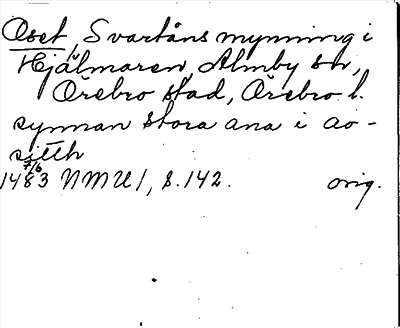 Oset, Svartåns mynning i
Hjälmaren, Almby sn,
Örebro stad, Örebro l.
synnan stora ana i ao-
sætth
7/6
1483 NMU 1, s. 142. orig.